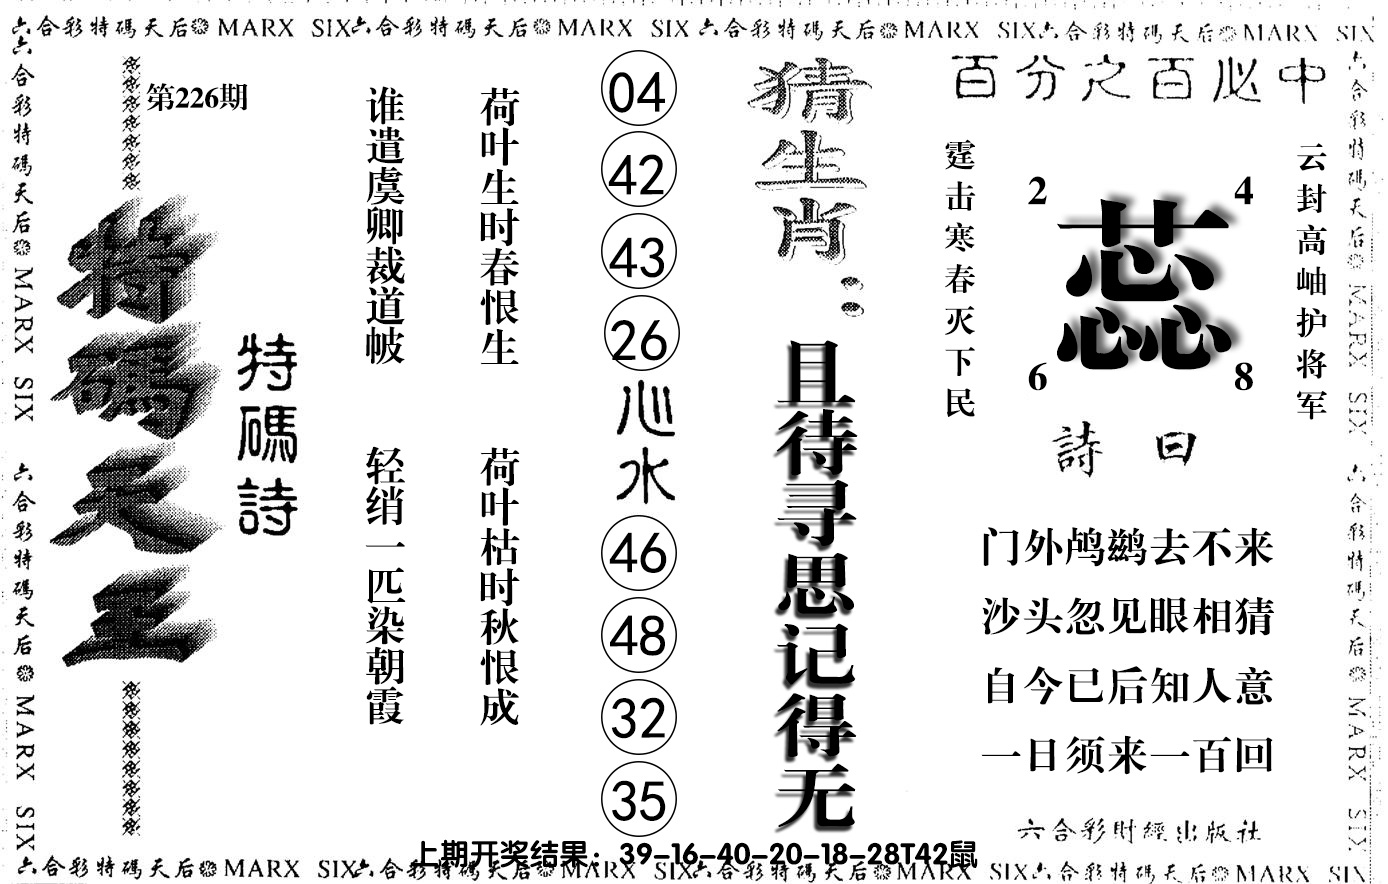 六合彩特碼天后 MARX SIX 六合彩特碼天后 MARX SIX 六合彩特碼天后 MARX SIX 六合彩特碼天后 MARX SIX
六合彩特碼天后 MARX SIX 六合彩特碼天后 MARX SIX
第226期
特碼天王
特碼詩
谁遣虞卿裁道帔
轻绡一匹染朝霞
荷叶生时春恨生
荷叶枯时秋恨成
04
42
43
26
心水
46
48
32
35
猜生肖：
且待寻思记得无
百分之百必中
霆击寒春灭下民
2
4
6
8
云封高岫护将军
詩曰
门外鸬鹚去不来
沙头忽见眼相猜
自今已后知人意
一日须来一百回
六合彩財經出版社
六合彩特碼天后 MARX SIX 六合彩特碼天后 MARX SIX
上期开奖结果：39-16-40-20-18-28T42鼠
六合彩特碼天后 MARX SIX 六合彩特碼天后 MARX SIX 六合彩特碼天后 MARX SIX 六合彩特碼天后 MARX SIX